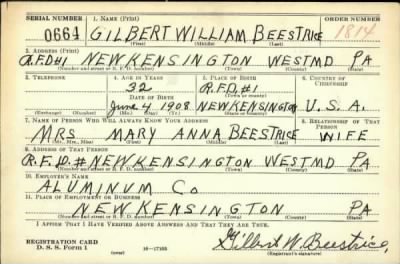 SERIAL NUMBER 1. NAME (Print) ORDER NUMBER
0664 GILBERT WILLIAM BEESTRICE 1814
(First) (Middle) (Last)
2. ADDRESS (Print)
R.F.D#1 NEWKENSINGTON WESTMD PA
(Number and street or R. F. D. number) (Town) (County) (State)
3. TELEPHONE 4. AGE IN YEARS 5. PLACE OF BIRTH 6. COUNTRY OF CITIZENSHIP
32 R.F.D.#1
DATE OF BIRTH
June 4 1908 NEWKENSINGTON U.S.A.
(Exchange) (Number) (Mo.) (Day) (Yr.) (State or country)
7. NAME OF PERSON WHO WILL ALWAYS KNOW YOUR ADDRESS 8. RELATIONSHIP OF THAT PERSON
MRS MARY ANNA BEESTRICE WIFE
(Mr., Mrs., Miss) (First) (Middle) (Last)
9. ADDRESS OF THAT PERSON
R.F.D.# NEWKENSINGTON WESTMD PA
(Number and street or R. F. D. number) (Town) (County) (State)
10. EMPLOYER'S NAME
ALUMINUM Co
11. PLACE OF EMPLOYMENT OR BUSINESS
NEWKENSINGTON PA
(Number and street or R. F. D. number) (Town) (County) (State)
I AFFIRM THAT I HAVE VERIFIED ABOVE ANSWERS AND THAT THEY ARE TRUE.
REGISTRATION CARD
D. S. S. Form 1 (over) 16—17105 Gilbert W. Beestrice,
(Registrant's signature)